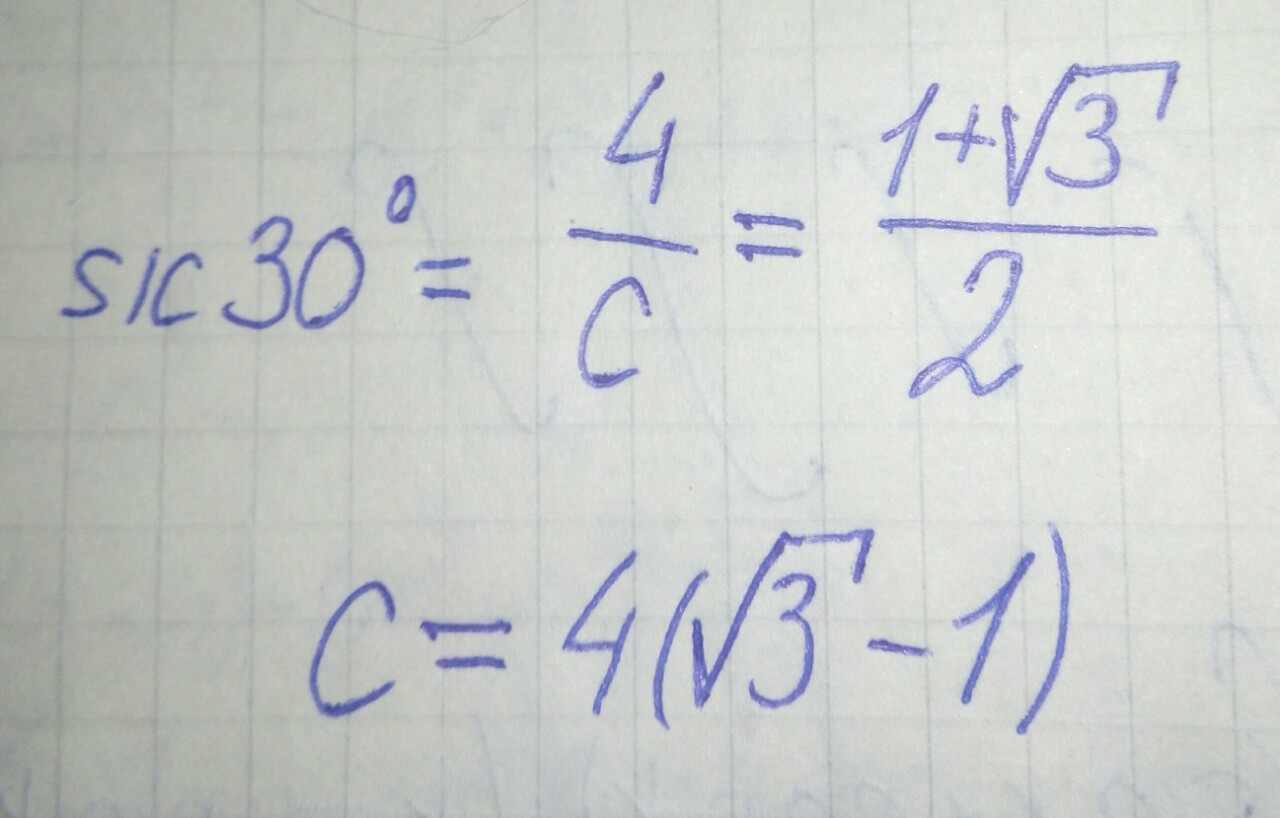 sic 30° = 4/c = (1+√3)/2
c = 4(√3 - 1)